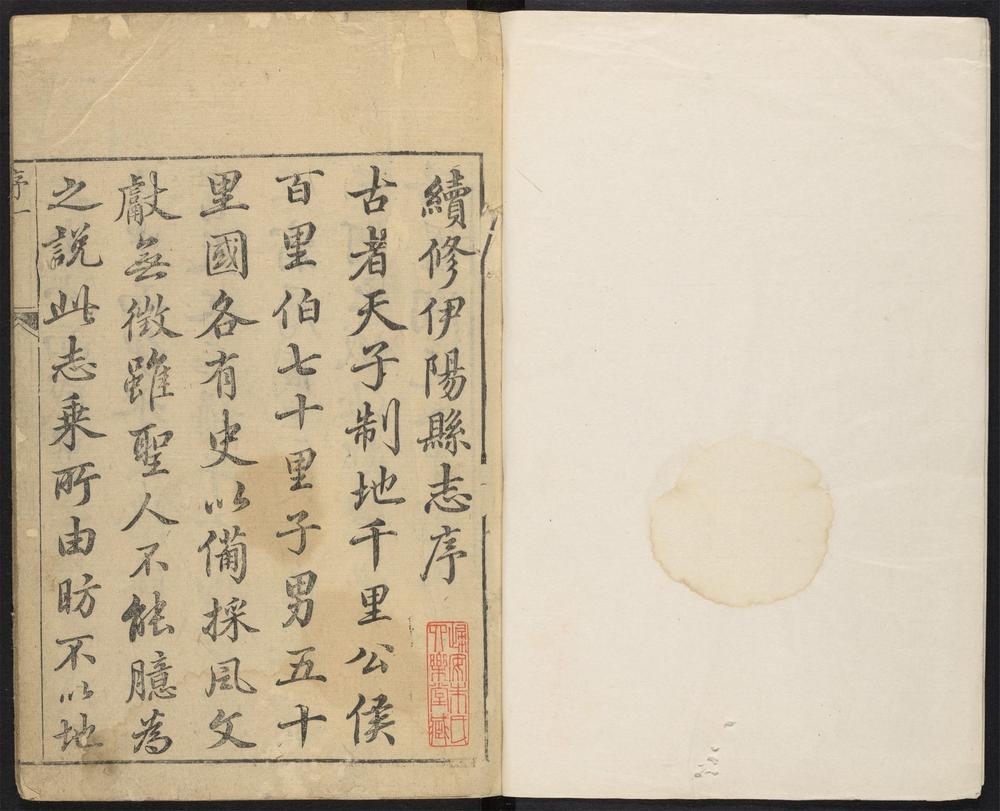 續修伊陽縣志序
古者天子制地千里公侯
百里伯七十里子男五十
里國各有史以備採風文
獻無徵雖聖人不能臆為
之説此志乗所由昉不以地
序一
歸安朱氏
六樂堂藏